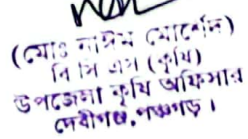 (মোঃ নাঈম মোর্শেদ)
বি সি এস (কৃষি)
উপজেলা কৃষি অফিসার
দেবীগঞ্জ, পঞ্চগড়।